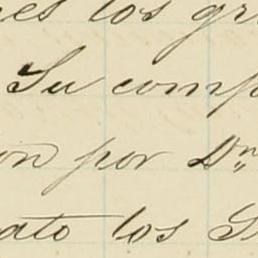 nes los gr
Su comp
on por Dn
ato los S